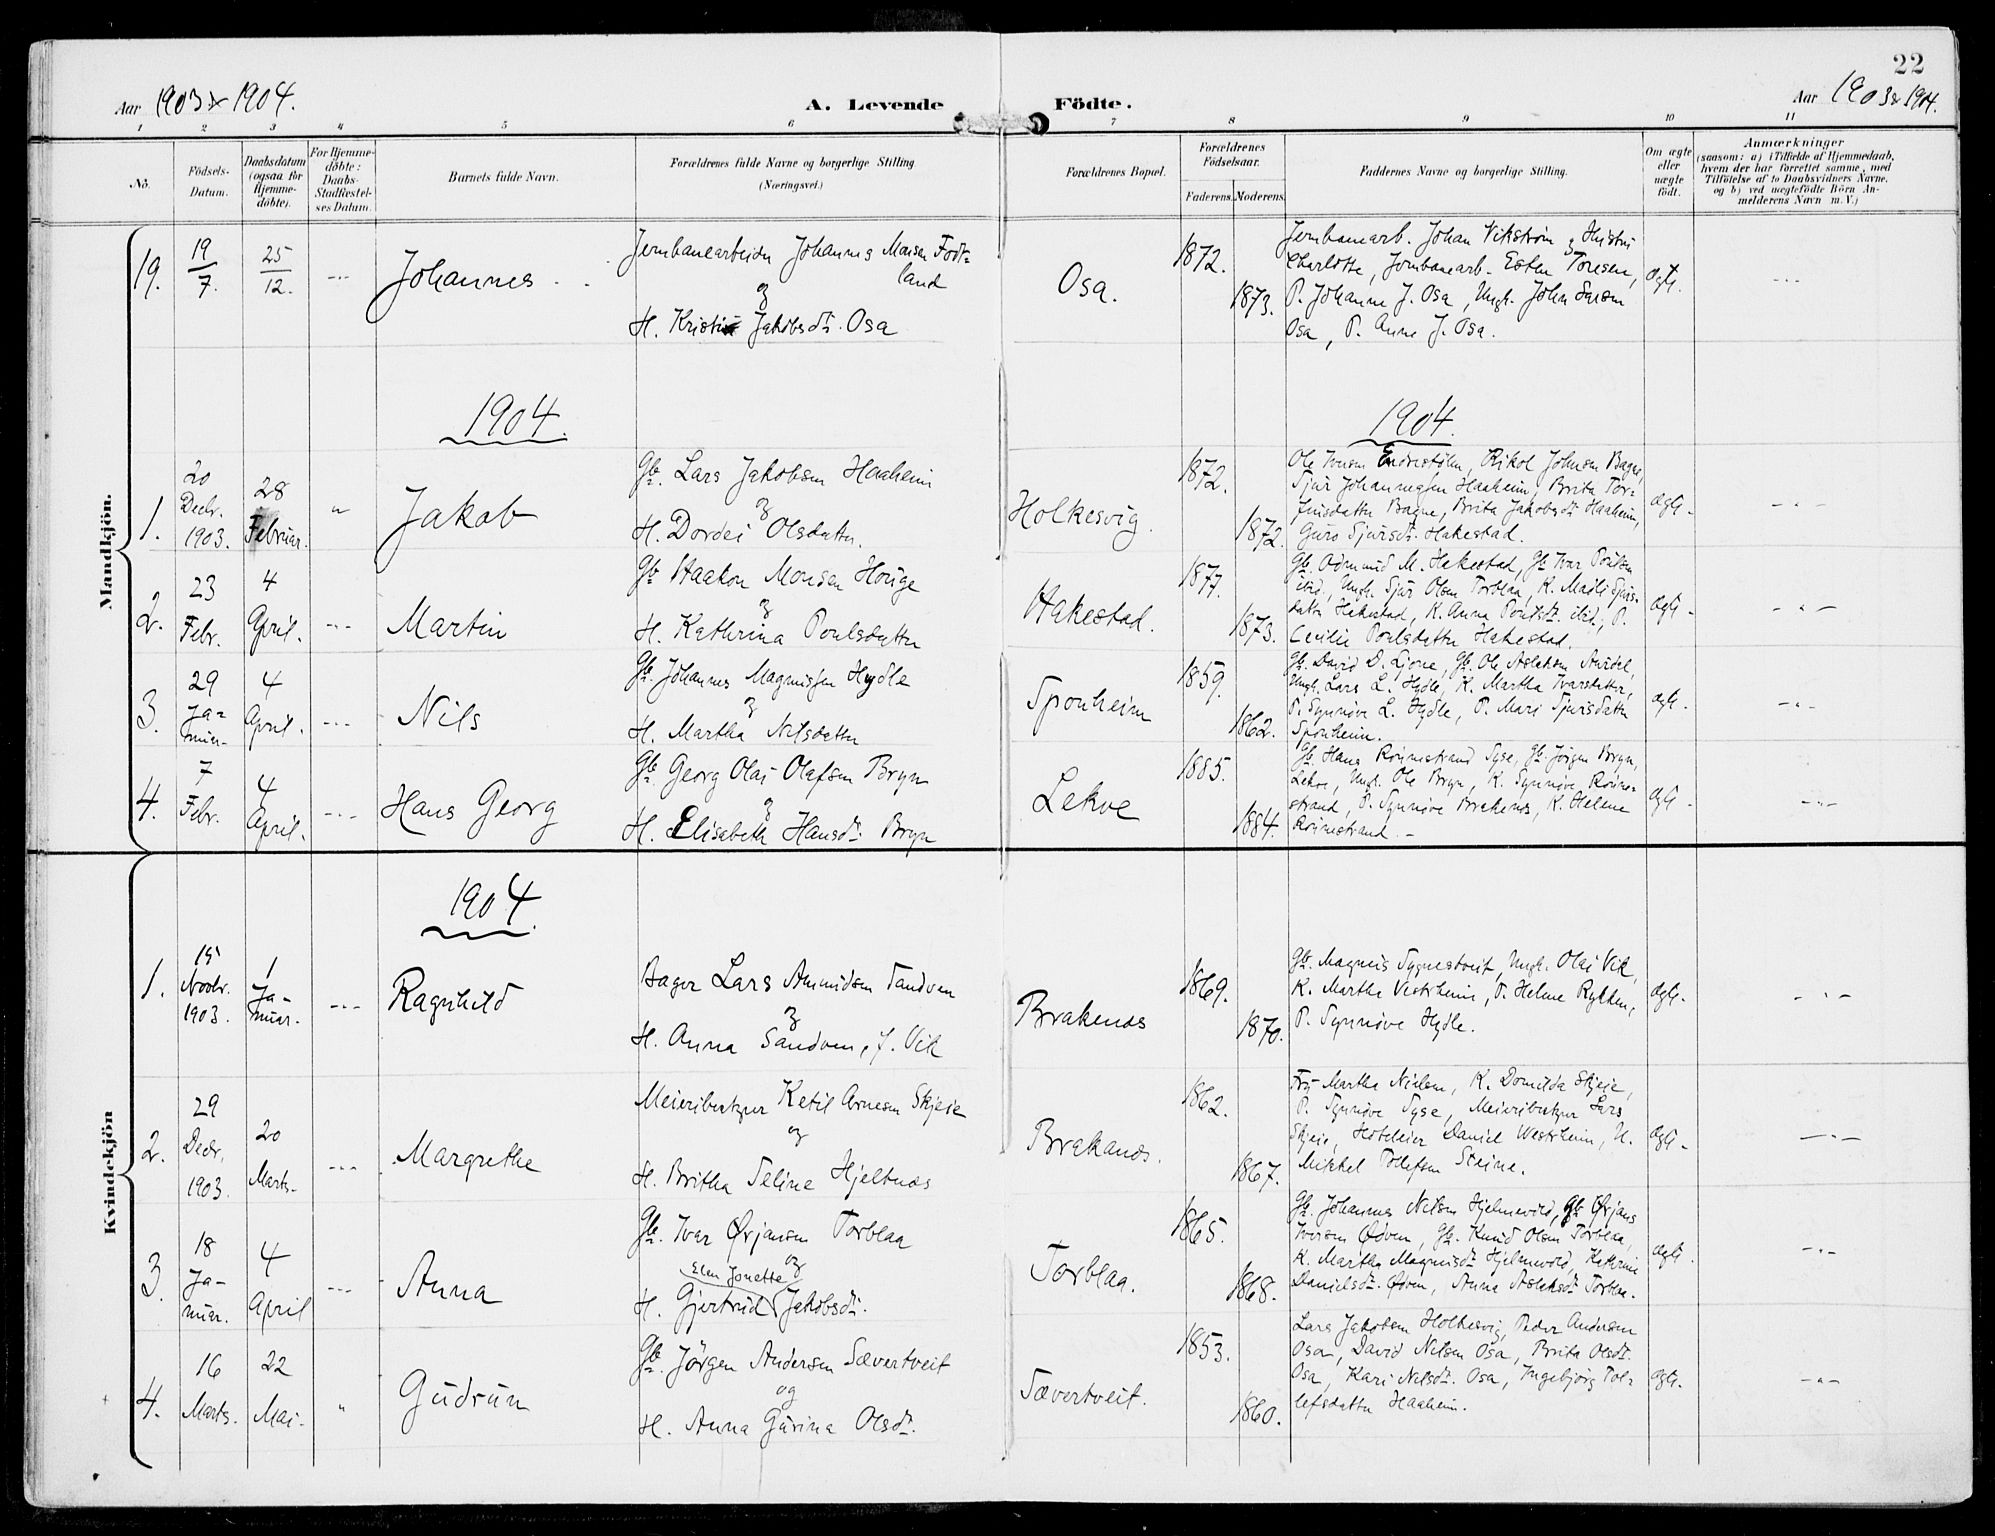 22
Aar 1903 & 1904.
A. Levende Födte.
Aar 1903 & 1904.
1 2 3 4 5 6 7 8 9 10 11
No.
Födsels-
Datum.
Daabsdatum
(ogsaa for
Hjemme-
döbte).
For Hjemme-
döbte:
Daabs-
Stadfæstel-
ses Datum.
Barnets fulde Navn.
Forældrenes fulde Navne og borgerlige Stilling
(Næringsvei.)
Forældrenes Bopæl.
Forældrenes
Födselsaar.
Faderens. Moderens.
Faddernes Navne og borgerlige Stilling.
Om ægte
eller
uægte
födt.
Anmærkninger
(saasom: a) i Tilfælde af Hjemmedaab,
hvem der har forrettet samme, med
Tilföielse af to Daabsvidners Navne.
og b) ved uægtefödte Börn An-
melderens Navn m. V.)
Mandkjön.
19.
19/7.
25/12.
Johannes
Jernbanearbeider Johannes Monsen Fodt-
land
og
H. Kristi Jakobsdt. Osa
Osa.
1872.
1873.
Jernbanearb. Johan Vikström & Hustru
Charlotte, Jernbanearb. Esten Tonesen,
P. Johanne J. Osa, Ungk. John
Osa, P. Anne J. Osa.
Ægt.
1904.
1904.
1.
20
Decbr.
1903.
28
Februar.
Jakob
Gbr. Lars Jakobsen Haaheim
og
H. Dordei Olsdatter.
Holkesvig.
1872.
1872.
Ole Iversen Endrestölen, Rikol Johnsen Bagne,
Sjur Johannessen Haaheim, Brita Tor-
finsdatter Bagne, Brita Jakobsdt. Haaheim,
Guro Sjursdt. Hakestad.
Ægt.
2.
23
Febr.
4
April.
Martin
Gbr Haakon Monsen Houge
og
H. Kathrina Poulsdatter
Hakestad.
1877.
1873.
Gbr. Odmund M. Hakestad, Gbr Ivar Poulsen
ibid, Ungk. Sjur Olsen Torblaa, K. Madli Sjurs-
datter Hakestad, K. Anna Poulsdt. ibid, P.
Cecilie Poulsdatter Hakestad.
Ægt.
3.
29
Ja-
nuar.
4
April.
Nils
Gbr. Johannes Magnussen Hydle
og
H. Martha Nilsdatter
Sponheim
1859.
1862.
Gbr. David D. Ljone, Gbr. Ole Aslaksen
Ungk. Lars L. Hydle, K. Martha Ivarsdatter,
P. Synnöve L. Hydle, P. Mari Sjursdatter
Sponheim.
Ægt.
4.
7
Febr.
4
April.
Hans Georg
Gbr Georg Olai Olafsen Bryn
og
H. Elisabeth Hansdt. Bryn
Lekve
1885.
1884.
Gbr. Hans Röinestrand Syse, Gbr. Jörgen Bryn,
Lekve, Ungk. Ole Bryn, K. Synnöve Röine-
strand, P. Synnöve Brakenes, K. Helene
Röinestrand.
Ægt.
Kvindekjön
1904.
1.
15
Novbr.
1903.
1
Ja-
nuar.
Ragnhild
Bager Lars Amundsen Sandven
og
H. Anna Sandven, f. Vik
Brakenes
1869.
1870.
Gbr. Magnus Sygnestveit, Ungk. Olai Vik,
K. Martha Vestrheim, P. Helene Rykken,
P. Synnöve Hydle.
Ægt.
2.
29
Decbr.
1903.
20
Marts.
Margrethe
Meieribestyrer Ketil Arnesen Skjeie
og
H. Britha Seline Hjeltnæs
Brakanes.
1862.
1867.
Fru Martha Nielsen, K. Domitda Skjeie,
P. Synnöve Syse, Meieribestyrer Lars
Skjeie, Hoteleier Daniel Westrheim, U.
Mikkel Tollefsen Steine.
Ægt.
3.
18
Ja-
nuar.
4
April
Anna
Gbr. Ivar Ørjansen Torblaa
og
Elen Jonette
H. Gjertrud Jakobsdt.
Torblaa.
1865.
1868.
Gbr. Johannes Nilsen Hjelmevold, Gbr Ørjans
Iversen Ødven, Gbr. Knud Olsen Torblaa,
K. Martha Magnusdt. Hjelmevold, Kathrine
Danielsdt. Ødven, Anna Aslaksdt Torblaa.
Ægt.
4.
16
Marts.
22
Mai.
Gudrun
Gbr. Jörgen Andersen Sævertveit
og
H. Anna Gurina Olsdt.
Sævertveit.
1853.
1860.
Lars Jakobsen Holkesvig, Peder Andersen
Osa, David Nilsen Osa, Brita Olsdt.
Osa, Kari Nilsdt. Osa, Ingebjörg Tol-
lefsdatter Haaheim.
Ægt.